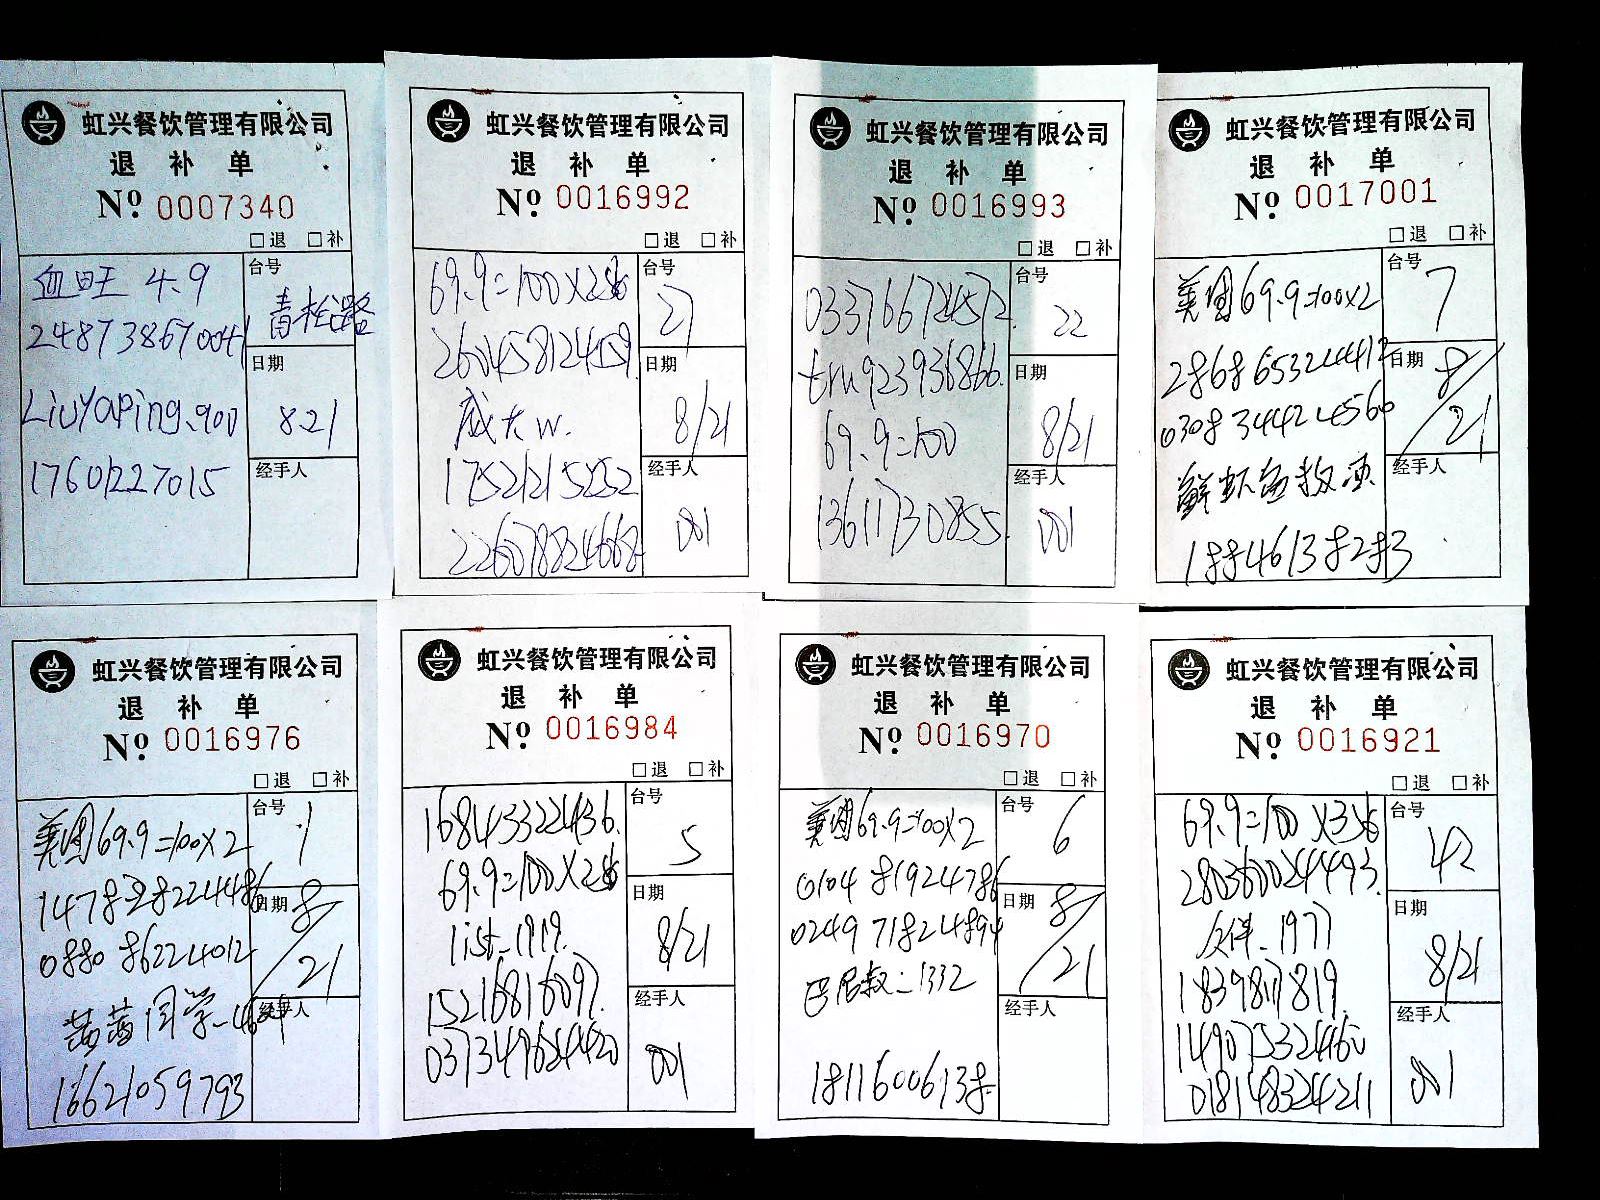 虹兴餐饮管理有限公司
退 补 单
Nº 0007340
□退 □补
血旺 4.9
248738670041
LiuYaping.900
17601227015
台号
青松路
日期
8.21
经手人
虹兴餐饮管理有限公司
退 补 单
Nº 0016992
□退 □补
69.9=100X2
260458124459
威大w.
17521215252
226078824668
台号
27
日期
8/21
经手人
001
虹兴餐饮管理有限公司
退 补 单
Nº 0016993
□退 □补
033766724572.
tru923936866.
69.9=100
13611730855.
台号
22
日期
8/21
经手人
001
虹兴餐饮管理有限公司
退 补 单
Nº 0017001
□退 □补
美团69.9=100x2
286865324412
0308 34424566
18846138283
台号
7
日期
8/21
经手人
虹兴餐饮管理有限公司
退 补 单
Nº 0016976
□退 □补
美团69.9=100X2
0880 86224012
茜茜同学
16621059793
台号
1
日期
8/21
经手人
虹兴餐饮管理有限公司
退 补 单
Nº 0016984
□退 □补
168433221436.
69.9=100X2
list_1919.
15216816097.
037349624420
台号
5
日期
8/21
经手人
001
虹兴餐饮管理有限公司
退 补 单
Nº 0016970
□退 □补
美团69.9=100X2
0104 81924786
0249 71824894
18116006138
台号
6
日期
8/21
经手人
虹兴餐饮管理有限公司
退 补 单
Nº 0016921
□退 □补
69.9=100 X3
280360024493.
1977
18398117819.
149075324460
018148324211
台号
42
日期
8/21
经手人
001